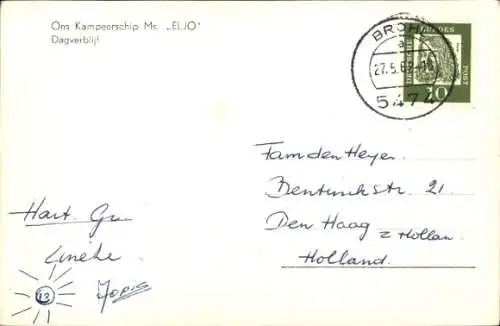 Ons Kampeerschip Ms. „ELJO"
Dagverblijf
BROHL
a
27.5.63-18
5474
BUNDES
POST
10
Fam den Heyer.
Bentinckstr. 21.
Den Haag
z Hollan.
Holland.
Hart. Gr.
Lineke
Joris
13